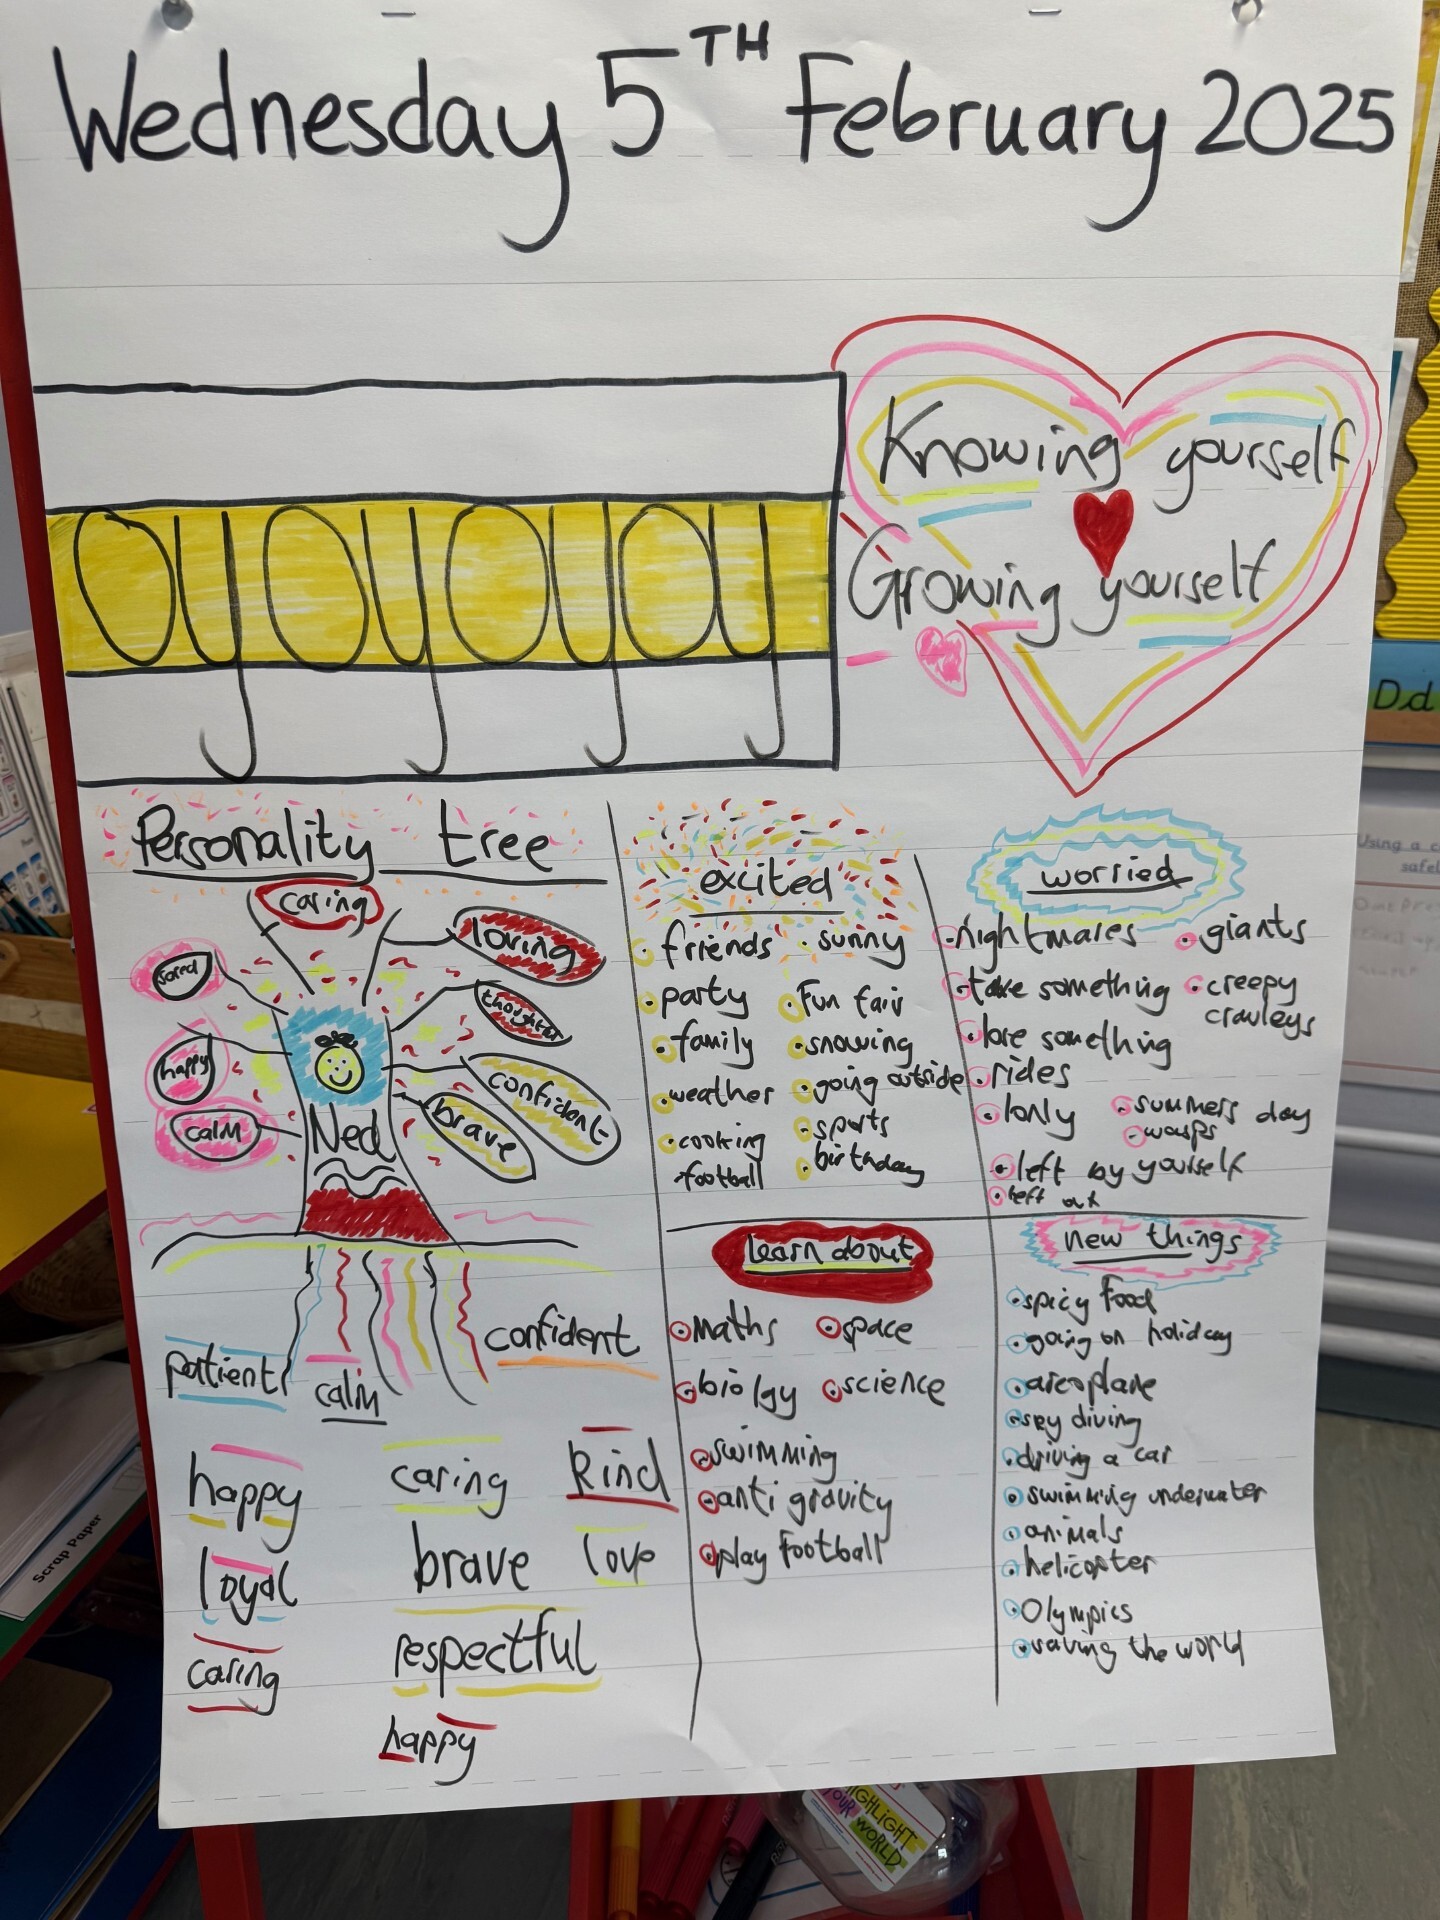 Wednesday 5TH February 2025
Knowing yourself
Growing yourself
oyoyoyay
Dd
Personality tree
caring
loving
happy
calm
confident
brave
Ned
patient
calm
confident
happy
caring
kind
loyal
brave
love
caring
respectful
happy
excited
friends
party
family
weather
cooking
football
sunny
Fun fair
snowing
going outside
sports
birthday
worried
nightmares
take something
lose something
rides
lonly
left by yourself
left out
giants
creepy
crawleys
summers day
wasps
learn about
maths
space
biolgy
science
swimming
anti gravity
play football
new things
spicy food
going on holiday
areoplane
sky diving
driving a car
swimming underwater
animals
helicopter
Olympics
saving the world
Scrap Paper
HIGHLIGHT
YOUR WORLD